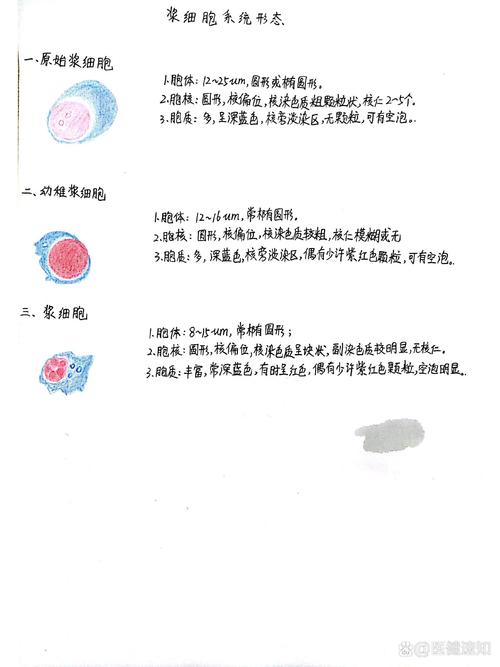 浆细胞系统形态
一、原始浆细胞
1.胞体：12~25um，圆形或椭圆形。
2.胞核：圆形，核偏位，核染色质粗颗粒状，核仁2~5个。
3.胞质：多，呈深蓝色，核旁淡染区，无颗粒，可有空泡。
二、幼稚浆细胞
1.胞体：12~16um，常椭圆形。
2.胞核：圆形，核偏位，核染色质较粗，核仁模糊或无
3.胞质：多，深蓝色，核旁淡染区，偶有少许紫红色颗粒，可有空泡。
三、浆细胞
1.胞体：8~15um，常椭圆形；
2.胞核：圆形，核偏位，核染色质呈块状，副染色质较明显，无核仁。
3.胞质：丰富，常深蓝色，有时呈红色，偶有少许紫红色颗粒，空泡明显。
医健速知